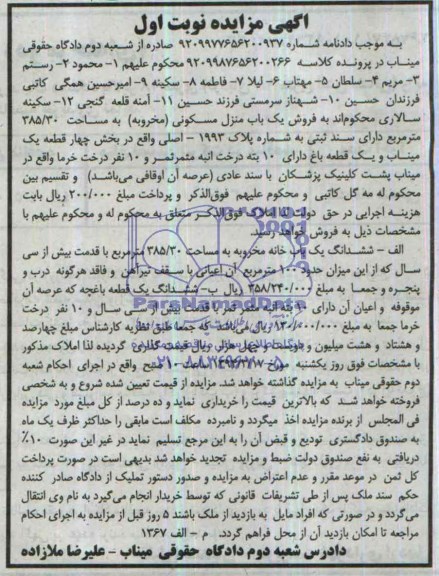 آگهی مزایده نوبت اول
به موجب دادنامه شماره ۹۲۰۹۹۷۷۶۵۶۲۰۰۹۳۷ صادره از شعبه دوم دادگاه حقوقی
میناب در پرونده کلاسه ۹۲۰۹۹۸۷۶۵۶۲۰۰۲۶۶ محکوم علیهم ۱- محمود ۲- رستم
۳- مریم ۴- سلطان ۵- مهتاب ۶- لیلا ۷- فاطمه ۸- سکینه ۹- امیرحسین همگی کاتبی
فرزندان حسین ۱۰- شهناز سرمستی فرزند حسین ۱۱- آمنه قلعه گنجی ۱۲- سکینه
سالاری محکوم‌اند به فروش یک باب منزل مسکونی (مخروبه) به مساحت ۳۸۵/۳۰
مترمربع دارای سند ثبتی به شماره پلاک ۱۹۹۳ - اصلی واقع در بخش چهار قطعه یک
میناب و یک قطعه باغ دارای ۱۰ بته درخت انبه مثمرثمر و ۱۰ نفر درخت خرما واقع در
میناب پشت کلینیک پزشکان با سند عادی (عرصه آن اوقافی می‌باشد) و تقسیم بین
محکوم له مه گل کاتبی و محکوم علیهم فوق‌الذکر و پرداخت مبلغ ۲۰۰/۰۰۰ ریال بابت
هزینه اجرایی در حق دولت که املاک فوق‌الذکر متعلق به محکوم له و محکوم علیهم با
مشخصات ذیل به فروش خواهد رسید.
الف - ششدانگ یک باب خانه مخروبه به مساحت ۳۸۵/۳۰ مترمربع با قدمت بیش از سی
سال که از این میزان حدود ۱۰۰ مترمربع آن اعیانی با سقف تیرآهن و فاقد هرگونه درب و
پنجره و جمعا به مبلغ ۳۵۸/۲۴۰/۰۰۰ ریال ب- ششدانگ یک قطعه باغچه که عرصه آن
موقوفه و اعیان آن دارای ۱۰ بته انبه مثمر ثمر با قدمت بیش از سی سال و ۱۰ نفر درخت
خرما جمعا به مبلغ ۱۳۰/۰۰۰/۰۰۰ ریال می‌باشد که جمعا طبق نظریه کارشناس مبلغ چهارصد
و هشتاد و هشت میلیون و دویست و چهل هزار ریال قیمت گذاری گردیده لذا املاک مذکور
با مشخصات فوق روز یکشنبه مورخ ساعت ۱۰ صبح واقع در اجرای احکام شعبه
دوم حقوقی میناب به مزایده گذاشته خواهد شد. مزایده از قیمت تعیین شده شروع و به شخصی
فروخته خواهد شد که بالاترین قیمت را خریداری نماید و ده درصد از کل مبلغ مورد مزایده
فی المجلس از برنده مزایده اخذ میگردد و نامبرده مکلف است مابقی را حداکثر ظرف یک ماه
به صندوق دادگستری تودیع و قبض آن را به این مرجع تسلیم نماید در غیر این صورت ۱۰٪
دریافتی به نفع صندوق دولت ضبط و مزایده تجدید خواهد شد بدیهی است در صورت پرداخت
کل ثمن در موعد مقرر و عدم اعتراض به مزایده و صدور دستور تملیک از دادگاه صادر کننده
حکم سند ملک پس از طی تشریفات قانونی که توسط خریدار انجام می‌گیرد به نام وی انتقال
می‌گردد و در صورتی که افراد مایل به بازدید از ملک باشند ۵ روز قبل از مزایده به اجرای احکام
مراجعه تا امکان بازدید آن از محل فراهم گردد. م - الف ۱۳۶۷
دادرس شعبه دوم دادگاه حقوقی میناب - علیرضا ملازاده
ParsNamadData